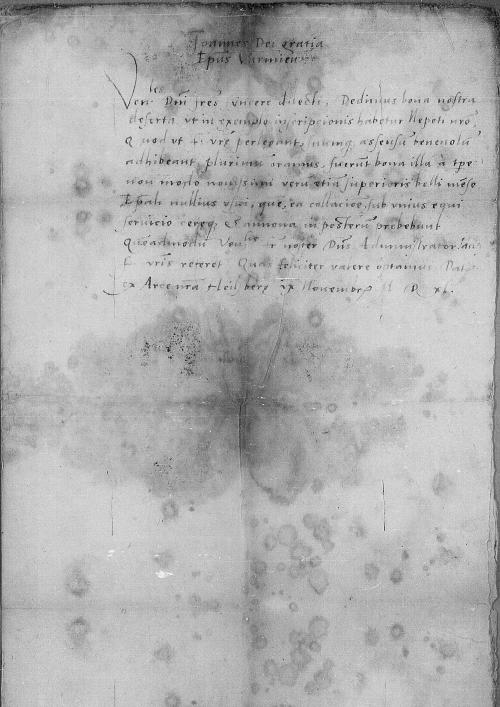 Ioannes Dei gratia
Epus Varmien
Ven les Dni fres sincere dilecti. Dedimus bona nostra
deserta vt in exemplo inscripcionis habetur Nepoti nro
Quod vt f. vre perlegant, suumq. assensum beneuolu
adhibeant, plurimu oramus, fuerut bona illa à tpe
non modo nouissimi veru etia superioris belli
Epali nullius vsui, que, ea collacioe, sub vnius equi
seruicio cereq. & annona in posterum prebebunt
Quéadmodu noster Dns Administrator
f. vris referet. Quas feliciter valere optamus. Dat
ex Arce nra Heilsberg ix Nouembr M D xl.